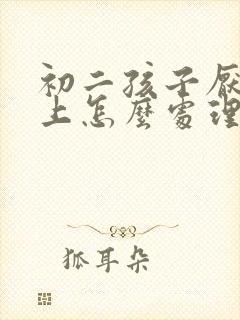 初二孩子厌
上怎麽处理
狐耳朵